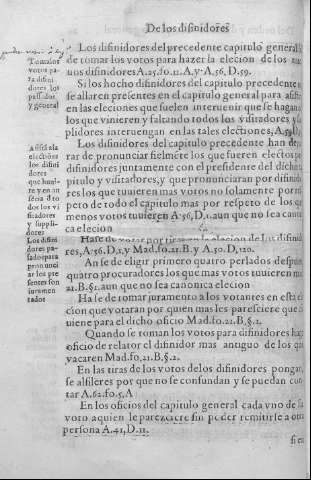 De los difinidores
Los difinidores del precedente capitulo general
de tomar los votos para hazer la elecion de los nue
uos difinidores A.25.fo.11.A,y A.56,D.59.
Si los hocho difinidores del capitulo precedente n
se allaren presentes en el capitulo general para assist
en las eleciones que suelen interuenir que se hagan
los que vinieren y faltando todos los visitadores y s
plidores interuengan en las tales elecTiones, A.59
Los difinidores del capitulo precedente han de
rar de pronunciar fielmete los que fueren electos p
difinidores juntamente con el presidente del dicho
pitulo y visitadores,y que pronunciaran por difinid
res los que tuuieren mas votos no solamente por
peto de todo el capitulo mas por respeto de los q
menos votos tuuieren A.56,D.1.aun que no sea canu
ca elecion
Hase de votar por tiras en la elecion de los difinid
res,A.56.D.1,y Mad.fo.21.B.y A.50.D,120.
An se de eligir primero quatro perlados despues
quatro procuradores los que mas votos tuuieren
21.B.§2.aun que no sea canonica elecion
Ha se de tomar juramento a los votantes en esta
cion que votaran por quien mas les paresciere que
uiene para el dicho officio Mad.fo.21.B,§.2.
Quando se toman los votos para difinidores ha
oficio de relator el difinidor mas antiguo de los q
vacaren Mad.fo,21.B,§.2.
En las tiras de los votos delos difinidores pongan
se alfileres por que no se confundan y se puedan con
tar A.62.fo.5,A
En los oficios del capitulo general cada vno de
voto aquien le paresciere sin poder remitirse a otra
persona A.41,D.11.
Tomalos
votos pa-
ra difini
dores los
passados
y general
Assista ala
electiones
los difini
dores
que huuie
re y en au
sencia de to
dos los vi
sitadores
y supli-
dores
Los difini
dores pa-
sados para
pronunci
ar los pre
sentes son
juramen
tados